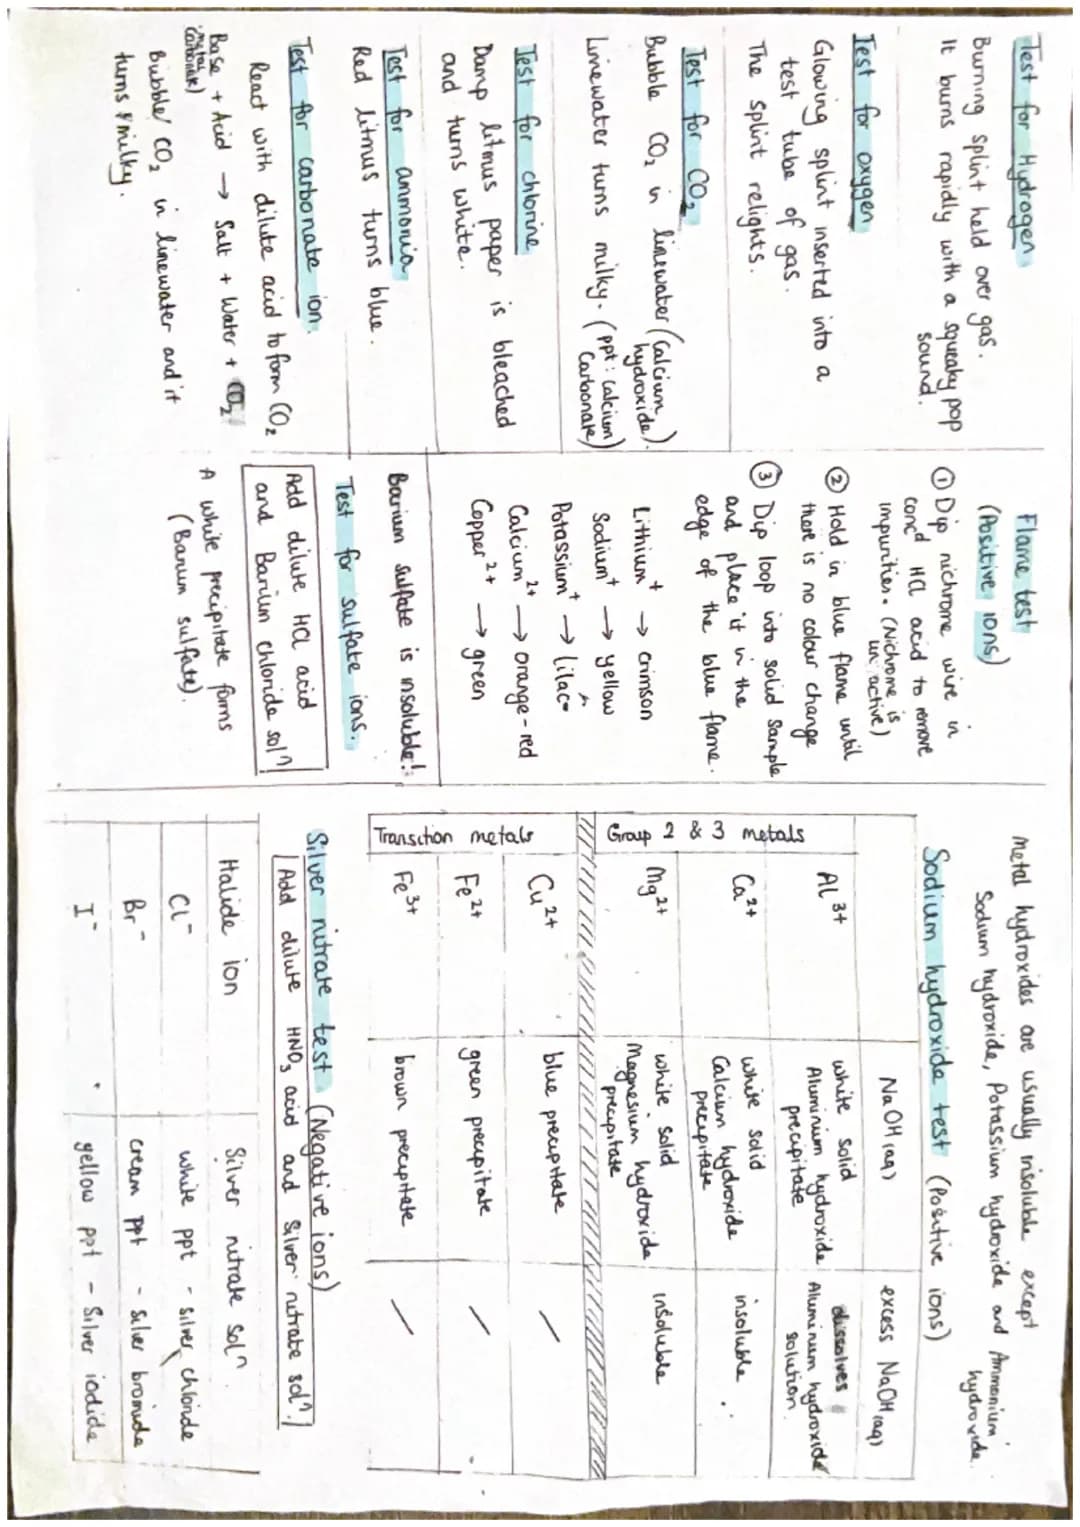 Test for Hydrogen
Burning splint held over gas.
It burns rapidly with a squeaky pop
sound.
Test for oxygen
Glowing splint inserted into a
test tube of gas.
The splint relights.
Test for CO2
Bubble CO2 in limewater (Calcium
hydroxide).
Limewater turns milky. (ppt: Calcium
Carbonate)
Test for chlorine
Damp litmus paper is bleached
and turns white.
Test for ammonia
Red litmus turns blue.
Test for carbonate ion.
React with dilute acid to form CO2
Base + Acid → Salt + Water + CO2
(metal
carbonate)
Bubble CO2 in limewater and it
turns milky.
Flame test
(Positive ions)
① Dip nichrome wire in
concd HCl acid to remove
impurities. (Nichrome is
unactive)
② Hold in blue flame until
there is no colour change
③ Dip loop into solid sample
and place it in the
edge of the blue flame.
Lithium+ → crimson
Sodium+ → yellow
Potassium+ → lilac
Calcium2+ → orange-red
Copper2+ → green
Barium sulfate is insoluble!
Test for sulfate ions.
Add dilute HCl acid
and Barium chloride soln
A white precipitate forms
(Barium sulfate).
Metal hydroxides are usually insoluble except
Sodium hydroxide, Potassium hydroxide and Ammonium
hydroxide.
Sodium hydroxide test (Positive ions)
NaOH(aq) excess NaOH(aq)
Group 2 & 3 metals
Al3+ white solid Aluminium hydroxide precipitate dissolves Aluminum hydroxide solution.
Ca2+ white solid Calcium hydroxide precipitate insoluble
Mg2+ white solid Magnesium hydroxide precipitate insoluble
Transition metals
Cu2+ blue precipitate /
Fe2+ green precipitate /
Fe3+ brown precipitate /
Silver nitrate test (Negative ions)
Add dilute HNO3 acid and Silver nitrate soln.
Halide ion Silver nitrate soln.
Cl- white ppt - silver chloride
Br- cream ppt - silver bromide
I- yellow ppt - Silver iodide